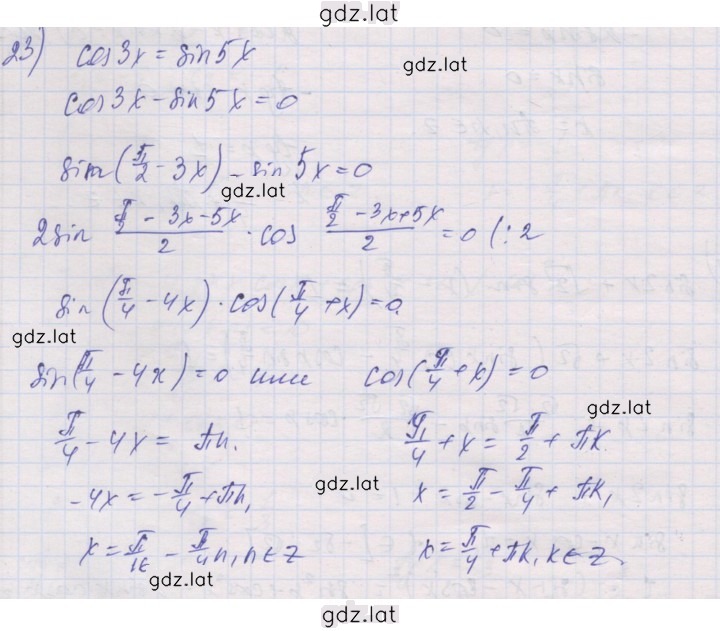 gdz.lat
23) cos3x = sin5x
gdz.lat
cos3x - sin5x = 0
sin(π/2 - 3x) - sin5x = 0
gdz.lat
2sin (π/2 - 3x - 5x)/2 · cos (π/2 - 3x + 5x)/2 = 0 (: 2
sin(π/4 - 4x) · cos(π/4 + x) = 0.
gdz.lat
sin(π/4 - 4x) = 0 или cos(π/4 + x) = 0
gdz.lat
π/4 - 4x = πn. π/4 + x = π/2 + πk.
gdz.lat
-4x = -π/4 + πn, x = π/2 - π/4 + πk,
x = π/16 - π/4 n, n ∈ Z x = π/4 + πk, k ∈ Z.
gdz.lat
gdz.lat